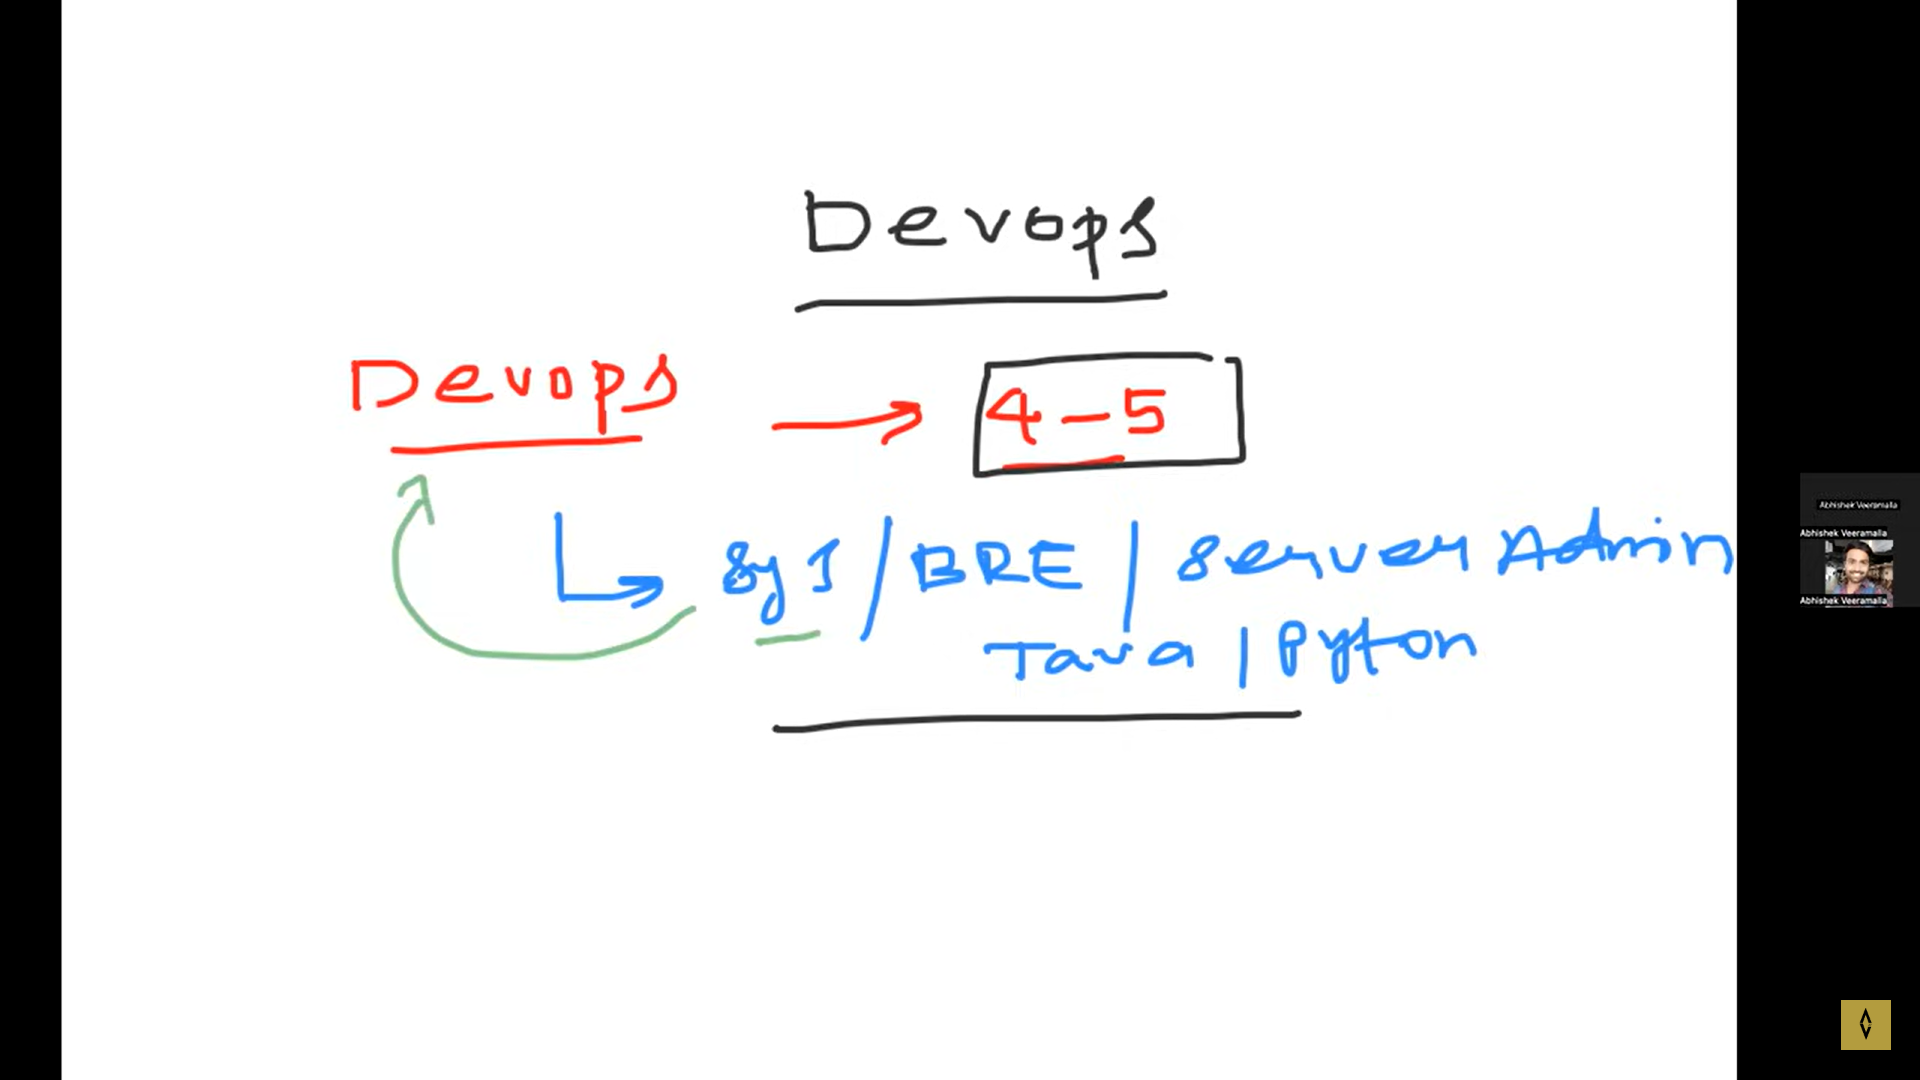 Devops
Devops → 4-5
Sys / BRE / Server Admin
Java | Pyton
Abhishek Veeramalla
Abhishek Veeramalla
Abhishek Veeramalla